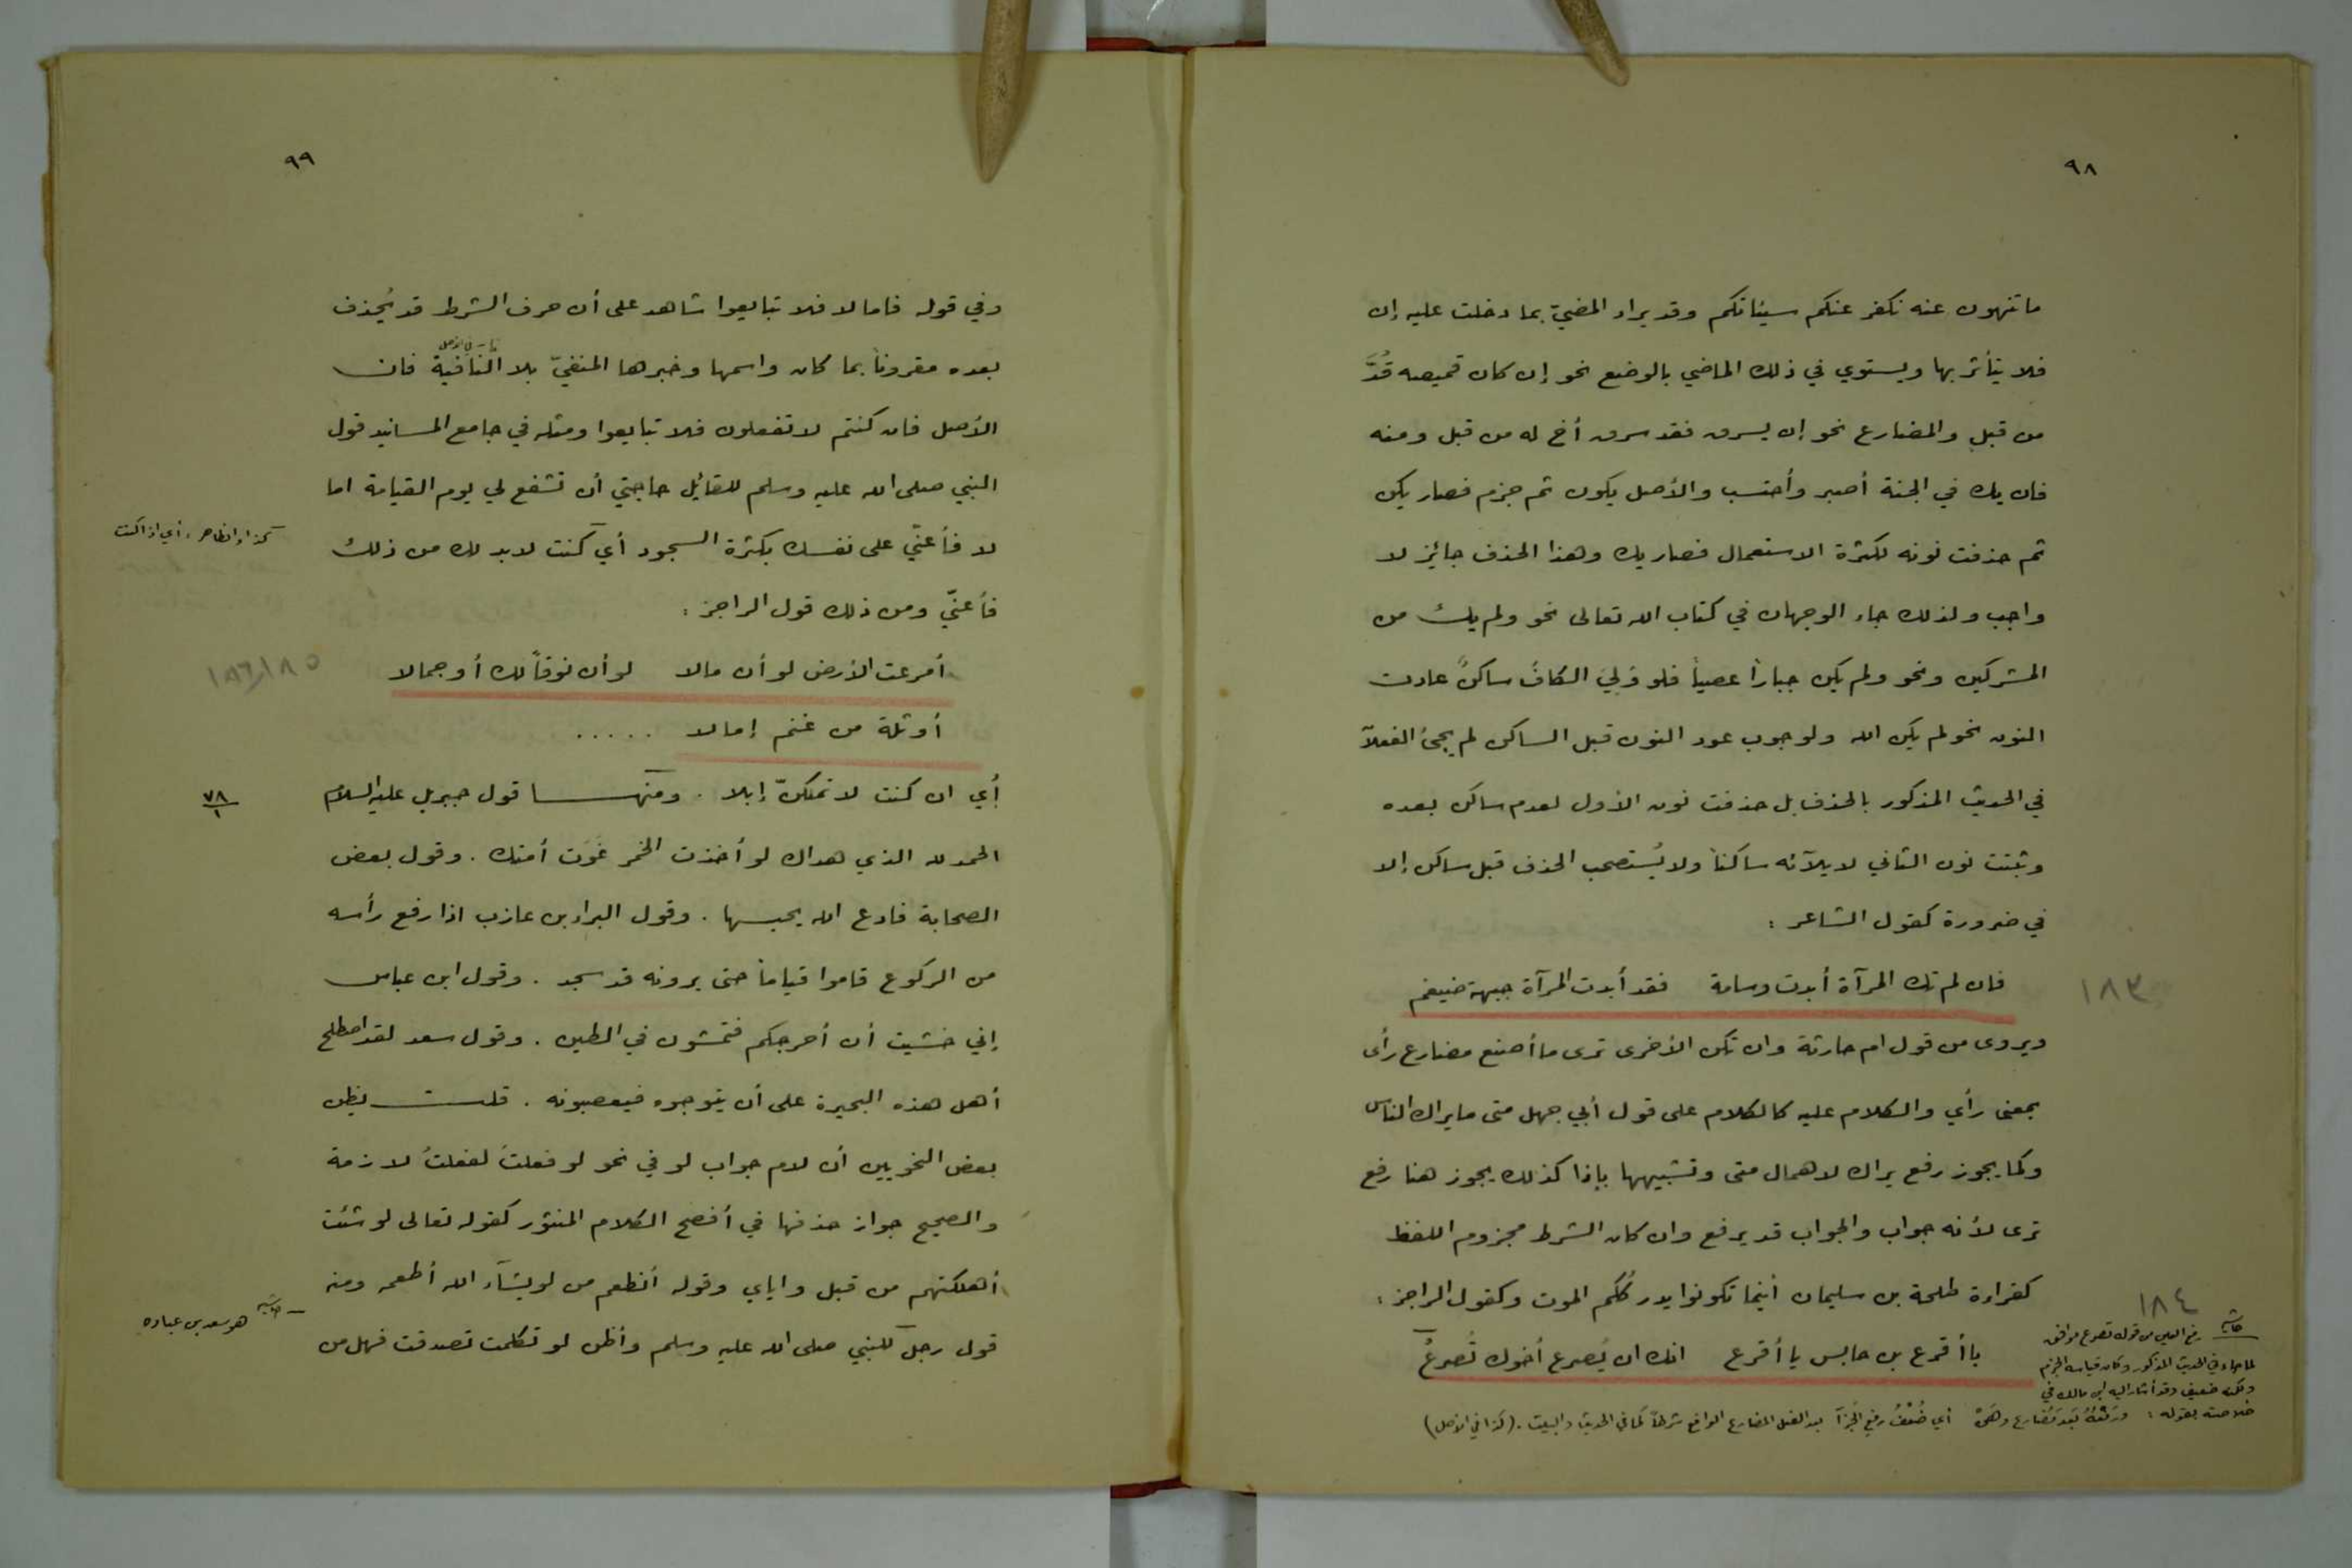 ٩٨
ما تنهون عنه نكفر عنكم سيئاتكم وقد يراد المضيّ بما دخلت عليه إن
فلا يتأثر بها ويستوي في ذلك الماضي بالوضع نحو إن كان قميصه قُدَّ
من قبل والمضارع نحو إن يسرق فقد سرق أخ له من قبل ومنه
فان يك في الجنة أصبر وأحتسب والأصل يكون ثم جزم فصار يكن
ثم حذفت نونه لكثرة الاستعمال فصار يك وهذا الحذف جائز لا
واجب ولذلك جاء الوجهان في كتاب الله تعالى نحو ولم يك من
المشركين ونحو ولم يكن جباراً عصياً فلو وَليَ الكافَ ساكنٌ عادت
النون نحو لم يكن الله ولوجوب عود النون قبل الساكن لم يجئ الفعلان
في الحديث المذكور بالحذف بل حذفت نون الأول لعدم ساكن بعده
وثبتت نون الثاني لايلائه ساكناً ولا يُستصحب الحذف قبل ساكن إلا
في ضرورة كقول الشاعر :
فان لم تك المرآة أبدت وسامة فقد أبدت المرآة جبهة ضيغم
١٨٣
ويروى من قول ام حارثة وان تكن الأخرى ترى ما أصنع مضارع رأى
بمعنى رأي والكلام عليه كالكلام على قول أبي جهل متى ما يراك الناس
وكما يجوز رفع يراك لاهمال متى وتشبيهها بإذا كذلك يجوز هنا رفع
ترى لأنه جواب والجواب قد يرفع وان كان الشرط مجزوم اللفظ
كقراءة طلحة بن سليمان أينما تكونوا يدرككُم الموت وكقول الراجز :
يا أقرع بن حابس يا أقرع انك ان يُصرع أخوك تُصرعُ
١٨٤
حاشية رفع العين من قوله تصرع موافق
لما جاء في الحديث المذكور وكان قياسه الجزم
ولكنه ضعيف وقد أشار اليه ابن مالك في
خلاصته بقوله : ورَفْعُهُ بَعدَ مُضارع وهَنْ أي ضُعْفُ رفع الجزآ بعد الفعل المضارع الواقع شرطاً كما في الحديث والبيت . (كذا في الأصل)
٩٩
وفي قوله فاما لا فلا تبايعوا شاهد على أن حرف الشرط قد يُحذف
بعده مقروناً بما كان واسمها وخبرها المنفيّ بلا النافية فان
الأصل فان كنتم لا تفعلون فلا تبايعوا ومثله في جامع المسانيد قول
النبي صلى الله عليه وسلم للقائل حاجتي أن تشفع لي يوم القيامة اما
لا فأعنّي على نفسك بكثرة السجود أي كنت لا بد لك من ذلك
كذا والظاهر : أي اذا كنت
فأعنّي ومن ذلك قول الراجز :
أمرعت الأرض لو أن مالا لو أن نوقاً لك أو جمالا
١٨٥ ١٨٦
أو ثلة من غنم إما لا . . . . .
أي ان كنت لا تملكّ إبلا . ومنها قول جبريل عليه السلام
٧٨
١
الحمد لله الذي هداك لو أخذت الخمر غَوَت أمتك . وقول بعض
الصحابة فادع الله يحبسها . وقول البراء بن عازب اذا رفع رأسه
من الركوع قاموا قياماً حتى يرونه قد سجد . وقول ابن عباس
إني خشيت أن أحرجكم فتمشون في الطين . وقول سعد لقد اصطلح
أهل هذه البحيرة على أن يتوجوه فيعصبونه . قلت يظن
بعض النحويين أن لام جواب لو في نحو لو فعلتَ لفعلتُ لازمة
والصحيح جواز حذفها في أفصح الكلام المنثور كقوله تعالى لو شئت
أهلكتهم من قبل واياي وقوله أنطعم من لو يشآء الله أطعمه ومنه
قول رجل للنبي صلى الله عليه وسلم وأظن لو تكلمت تصدقت فهل من
حاشية هو سعد بن عباده